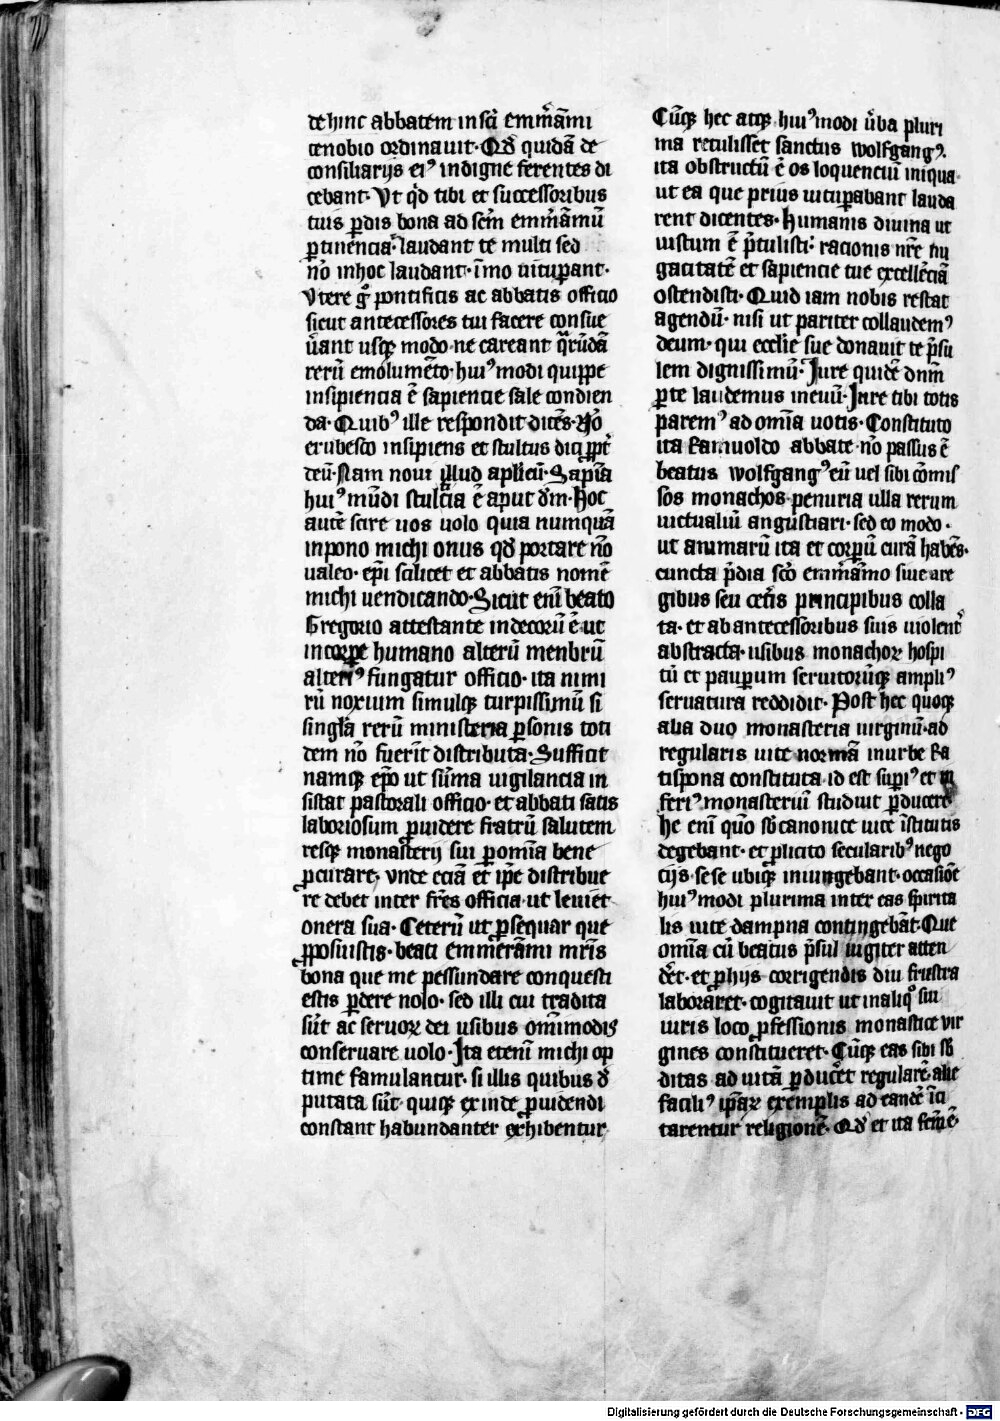 dehinc abbatem in scī emm̄ami
cenobio ordinauit· Qđ quidā de
consiliarijs eiꝰ indigne ferentes di
cebant· Vt qͥd tibi et successoribus
tuis ꝑdis bona ad scm̄ emm̄amū
ꝑtinencia· laudant te multi sed
nō inhoc laudant· īmo uituꝑant·
Vtere gͦ pontificis ac abbatis officio
sicut antecessores tui facere consue
ūant usqꝫ modo· ne careant qͣrūdā
rerū emolumēto· huiꝰmodi quippe
insipiencia ē sapiencie sale condien
da· Quibꝰ ille respondit dicēs· Nō
erubesco insipiens et stultus dici ꝓpt̄
deū· Nam noui illud aplicū· Sapīa
huiꝰ mūdi stulcīa ē aput dm̄· Hoc
autē scire uos uolo quia numquā
inpono michi onus qđ portare nō
ualeo· ep̄i scilicet et abbatis nomē
michi uendicando· Sicut enī beato
Gregorio attestante indecorū ē ut
incorꝑe humano alterū menbrū
alteriꝰ fungatur officio· ita nimi
rū noxium simulqꝫ turpissimū si
singl̄a rerū ministeria ꝑsonis toti
dem nō fuerīt distributa· Sufficit
namqꝫ ep̄o ut sūma uigilancia in
sistat pastorali officio· et abbati satis
laboriosum ꝓuidere fratrū salutem
resqꝫ monasterij sui ꝑ omīa bene
ꝓcurare· vnde eciā et ip̄e distribue
re debet inter fr̄es officia· ut leuiet
onera sua· Ceterū ut ꝓsequar que
ꝓposuistis· beati emmerāmi mr̄is
bona que me pessundare conquesti
estis ꝑdere nolo· sed illi cui tradita
sūt ac seruoꝝ dei usibus omīmodis
conseruare uolo· Ita etenī michi op
time famulantur· si illis quibus đ
putata sūt· quiqꝫ exinde ꝓuidendi
constant habundanter exhibentur
Cūqꝫ hec atqꝫ huiꝰmodi ūba pluri
ma retulisset sanctus wolfgangꝰ·
ita obstructū ē os loquenciū iniqua·
ut ea que prius uituꝑabant lauda
rent dicentes· Humanis diuina ut
iustum ē p̄tulisti· racionis nr̄e nu
gacitatē et sapiencie tue excellēciā
ostendisti· Quid iam nobis restat
agendū· nisi ut pariter collaudemꝰ
deum· qui ecclīe sue donauit te p̄su
lem dignissimū· Iure quidē dnm̄
ꝑ te laudemus ineuū· Iure tibi totis
paremꝰ ad omīa uotis· Constituto
ita Ramuoldo abbate· nō passus ē
beatus wolfgangꝰ eū uel sibi cōmis
sos monachos penuria ulla rerum
uictualiū angustiari· sed eo modo·
ut animarū ita et corꝑū curā habēs·
cuncta p̄dia sc̄o emm̄āmo siue a re
gibus seu ceteris principibus colla
ta· et ab antecessoribus suis uiolent̄
abstracta· usibus monachoꝝ hospi
tū et pauꝑum seruitorūqꝫ ampliꝰ
seruatura reddidit· Post hec quoqꝫ
alia duo monasteria uirginū· ad
regularis uite normā inurbe Ra
tispona constituta· id est suꝑiꝰ et in
feriꝰ monasteriū studuit ꝑducere·
He enī quō sb̄canonice uite īstitutis
degebant· et ꝓ licito secularibꝰ nego
cijs sese ubiqꝫ iniungebant· occasiōe
huiꝰmodi plurima inter eas spirita
lis uite dampna contingebāt· Que
omīa cū beatus p̄sul iugiter atten
deret· et ꝓ hijs corrigendis diu frustra
laboraret· cogitauit ut in aliqͦ sui
iuris loco ꝓfessionis monastice vir
gines constitueret· Cūqꝫ eas sibi sb̄
ditas ad uitā ꝑduceret regularē· alie
faciliꝰ ip̄aꝝ exemplis ad eandē īci
tarentur religionē· Qđ et ita